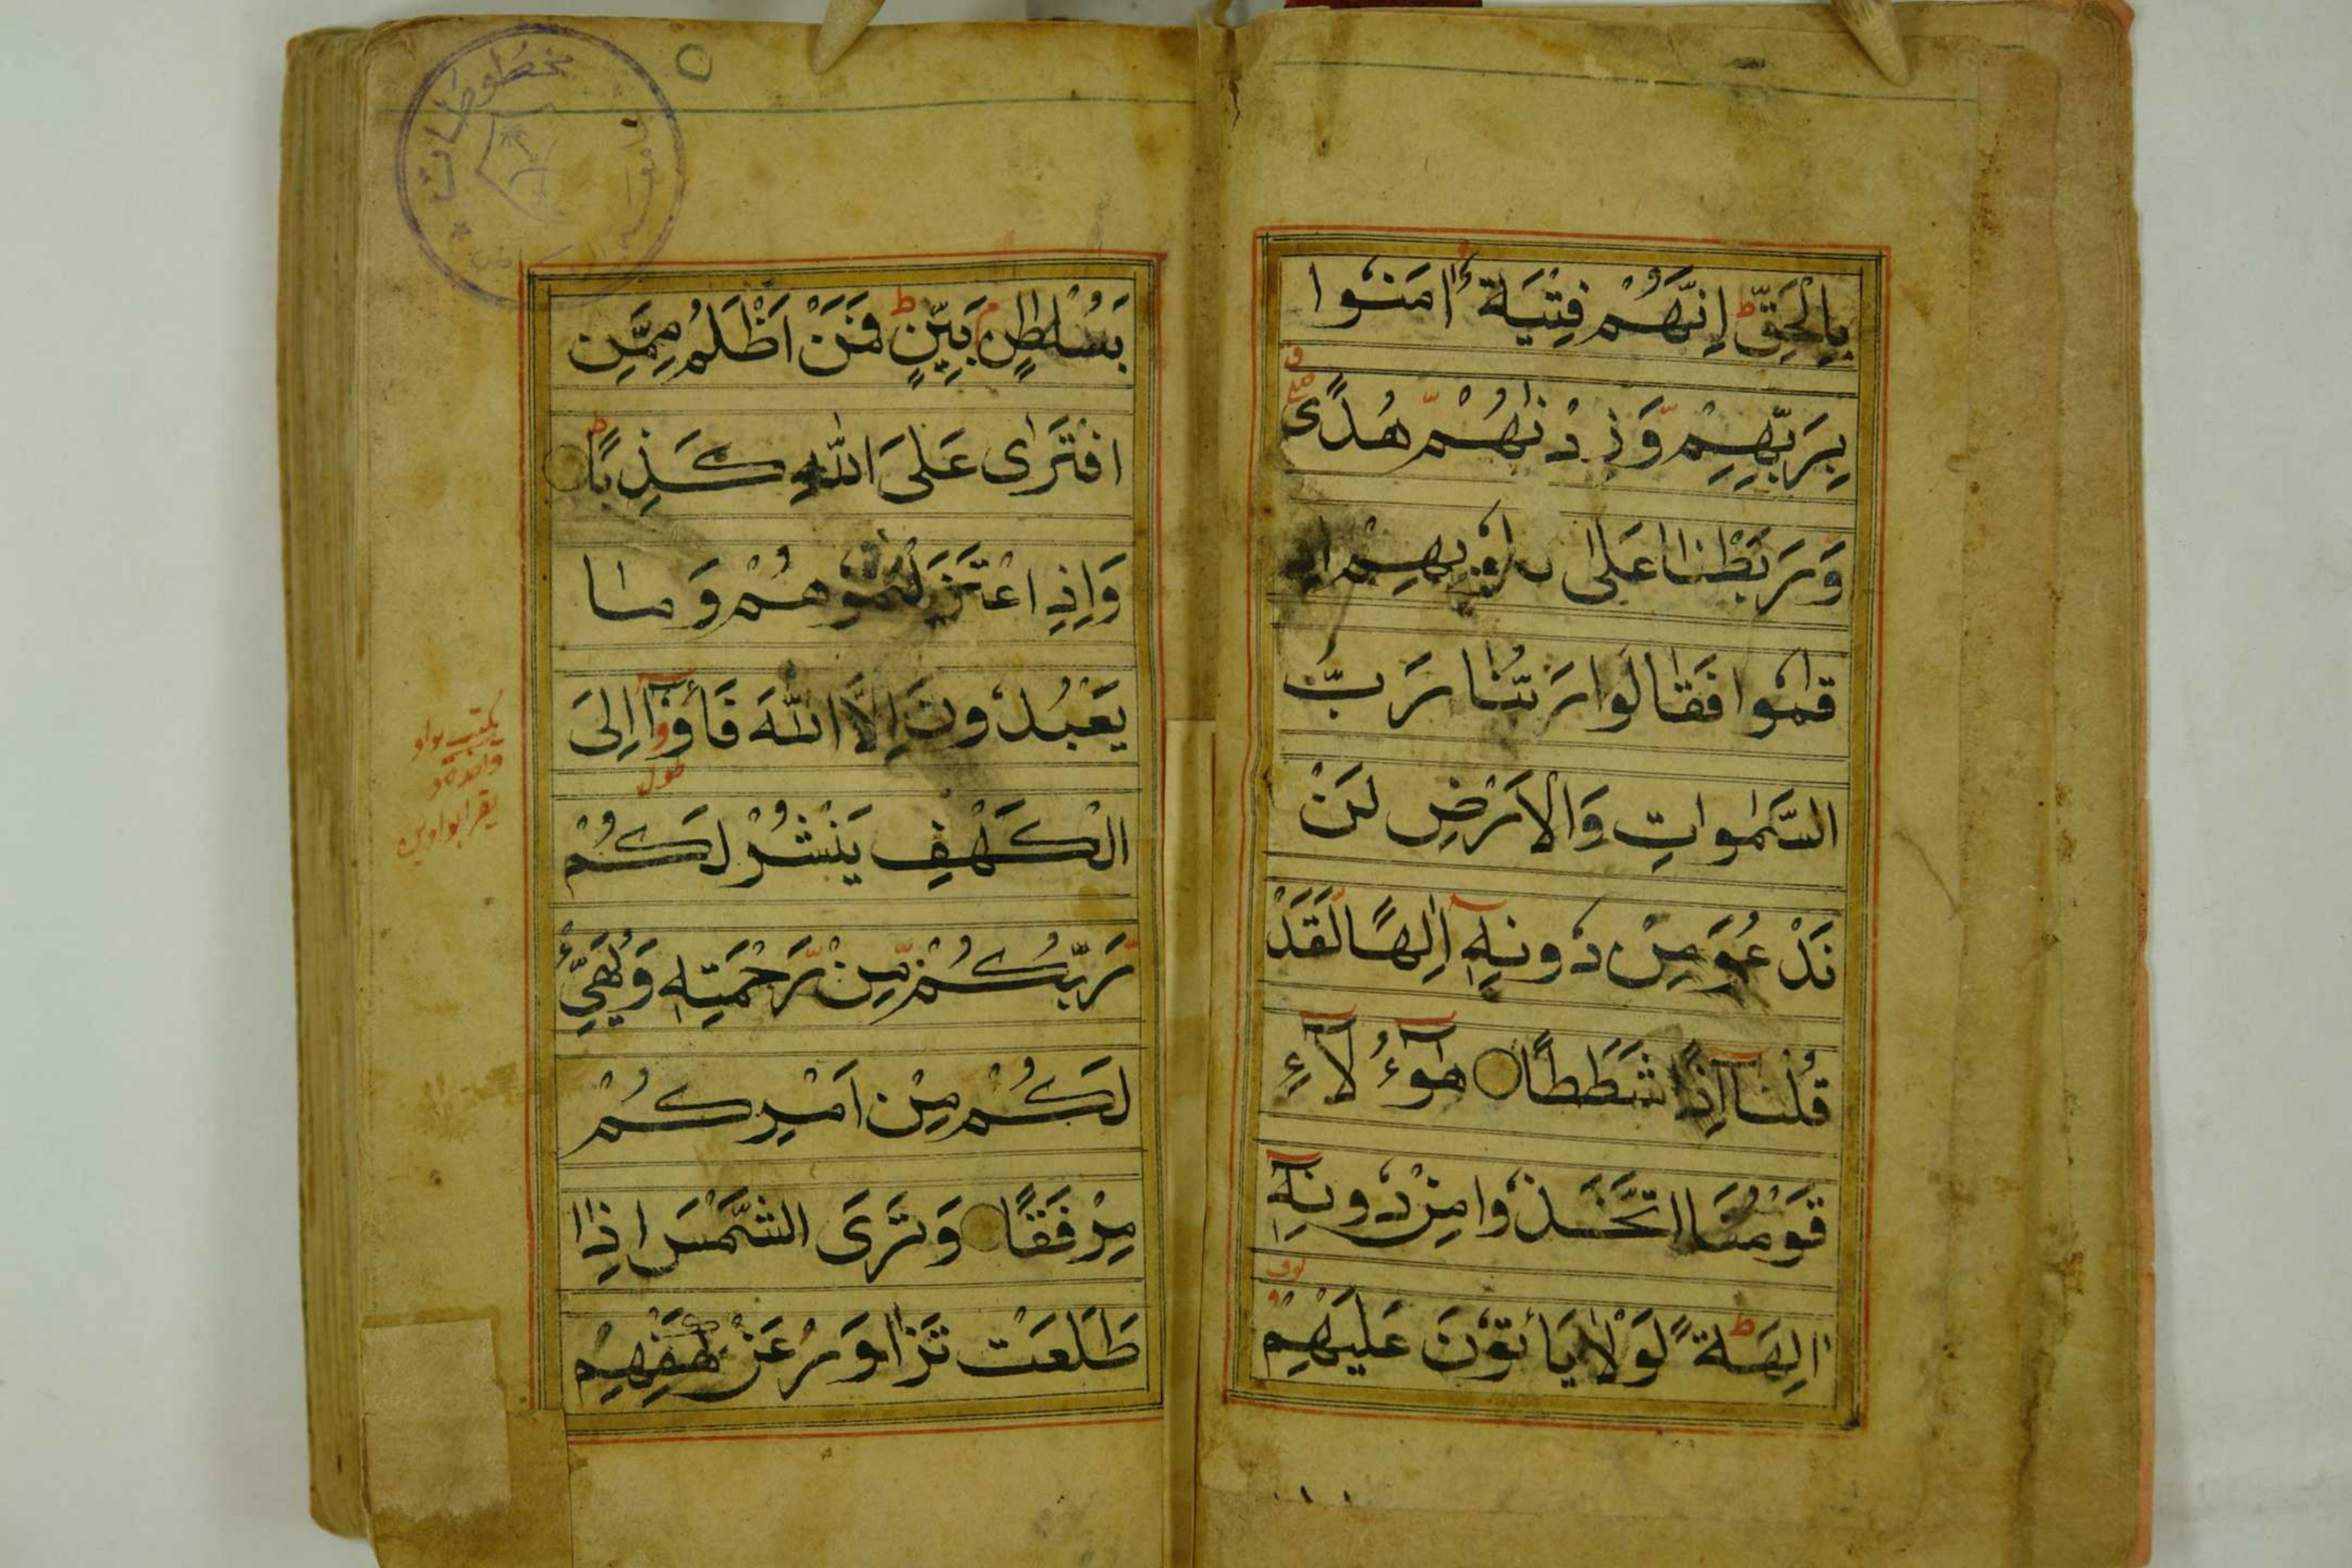 بِالْحَقِّ ط اِنَّهُمْ فِتْيَةٌ اٰمَنُوْا
بِرَبِّهِمْ وَزِدْنٰهُمْ هُدًى
وَرَبَطْنَا عَلٰى قلوبِهِمْ اِذ
قَامُوْا فَقَالُوْا رَبُّنَا رَبُّ
السَّمٰوَاتِ وَالْاَرْضِ لَنْ
نَدْعُوَا۟ مِنْ دُوْنِهٖٓ اِلٰهًا لَّقَدْ
قُلْنَآ اِذًا شَطَطًا هٰٓؤُلَآءِ
قَوْمُنَا اتَّخَذُوْا مِنْ دُوْنِهٖٓ
اٰلِهَةً ط لَوْلَا يَأْتُوْنَ عَلَيْهِمْ
بِسُلْطٰنٍ بَيِّنٍ ط فَمَنْ اَظْلَمُ مِمَّنِ
افْتَرٰى عَلَى اللّٰهِ كَذِبًا ط
وَاِذِ اعْتَزَلْتُمُوْهُمْ وَمَا
يَعْبُدُوْنَ اِلَّا اللّٰهَ فَأْوٗٓا اِلَى
الْكَهْفِ يَنْشُرْ لَكُمْ
رَبُّكُمْ مِّنْ رَّحْمَتِهٖ وَيُهَيِّئْ
لَكُمْ مِنْ اَمْرِكُمْ
مِرْفَقًا وَتَرَى الشَّمْسَ اِذَا
طَلَعَتْ تَزٰوَرُ عَنْ كَهْفِهِمْ
يكتب بواو
واحدة و
يقرا بواوين
مخطوطات